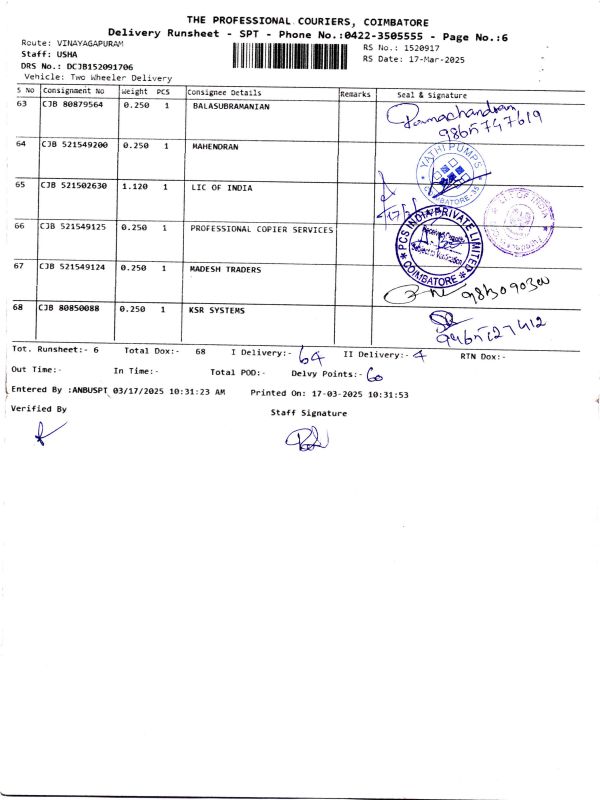 THE PROFESSIONAL COURIERS, COIMBATORE
Delivery Runsheet - SPT - Phone No.:0422-3505555 - Page No.:6
Route: VINAYAGAPURAM
RS No.: 1520917
Staff: USHA
RS Date: 17-Mar-2025
DRS No.: DCJB152091706
Vehicle: Two Wheeler Delivery
S No Consignment No Weight PCS Consignee Details Remarks Seal & Signature
63 CJB 80879564 0.250 1 BALASUBRAMANIAN Ramachandran
9865747619
64 CJB 521549200 0.250 1 MAHENDRAN
YATHI PUMPS
COIMBATORE-35
65 CJB 521502630 1.120 1 LIC OF INDIA
LIC OF INDIA
66 CJB 521549125 0.250 1 PROFESSIONAL COPIER SERVICES
PCS INDIA PRIVATE LIMITED
COIMBATORE
67 CJB 521549124 0.250 1 MADESH TRADERS
68 CJB 80850088 0.250 1 KSR SYSTEMS
Tot. Runsheet:- 6 Total Dox:- 68 I Delivery:- 64 II Delivery:- 4 RTN Dox:-
Out Time:- In Time:- Total POD:- Delvy Points:- 60
Entered By :ANBUSPT 03/17/2025 10:31:23 AM Printed On: 17-03-2025 10:31:53
Verified By
Staff Signature